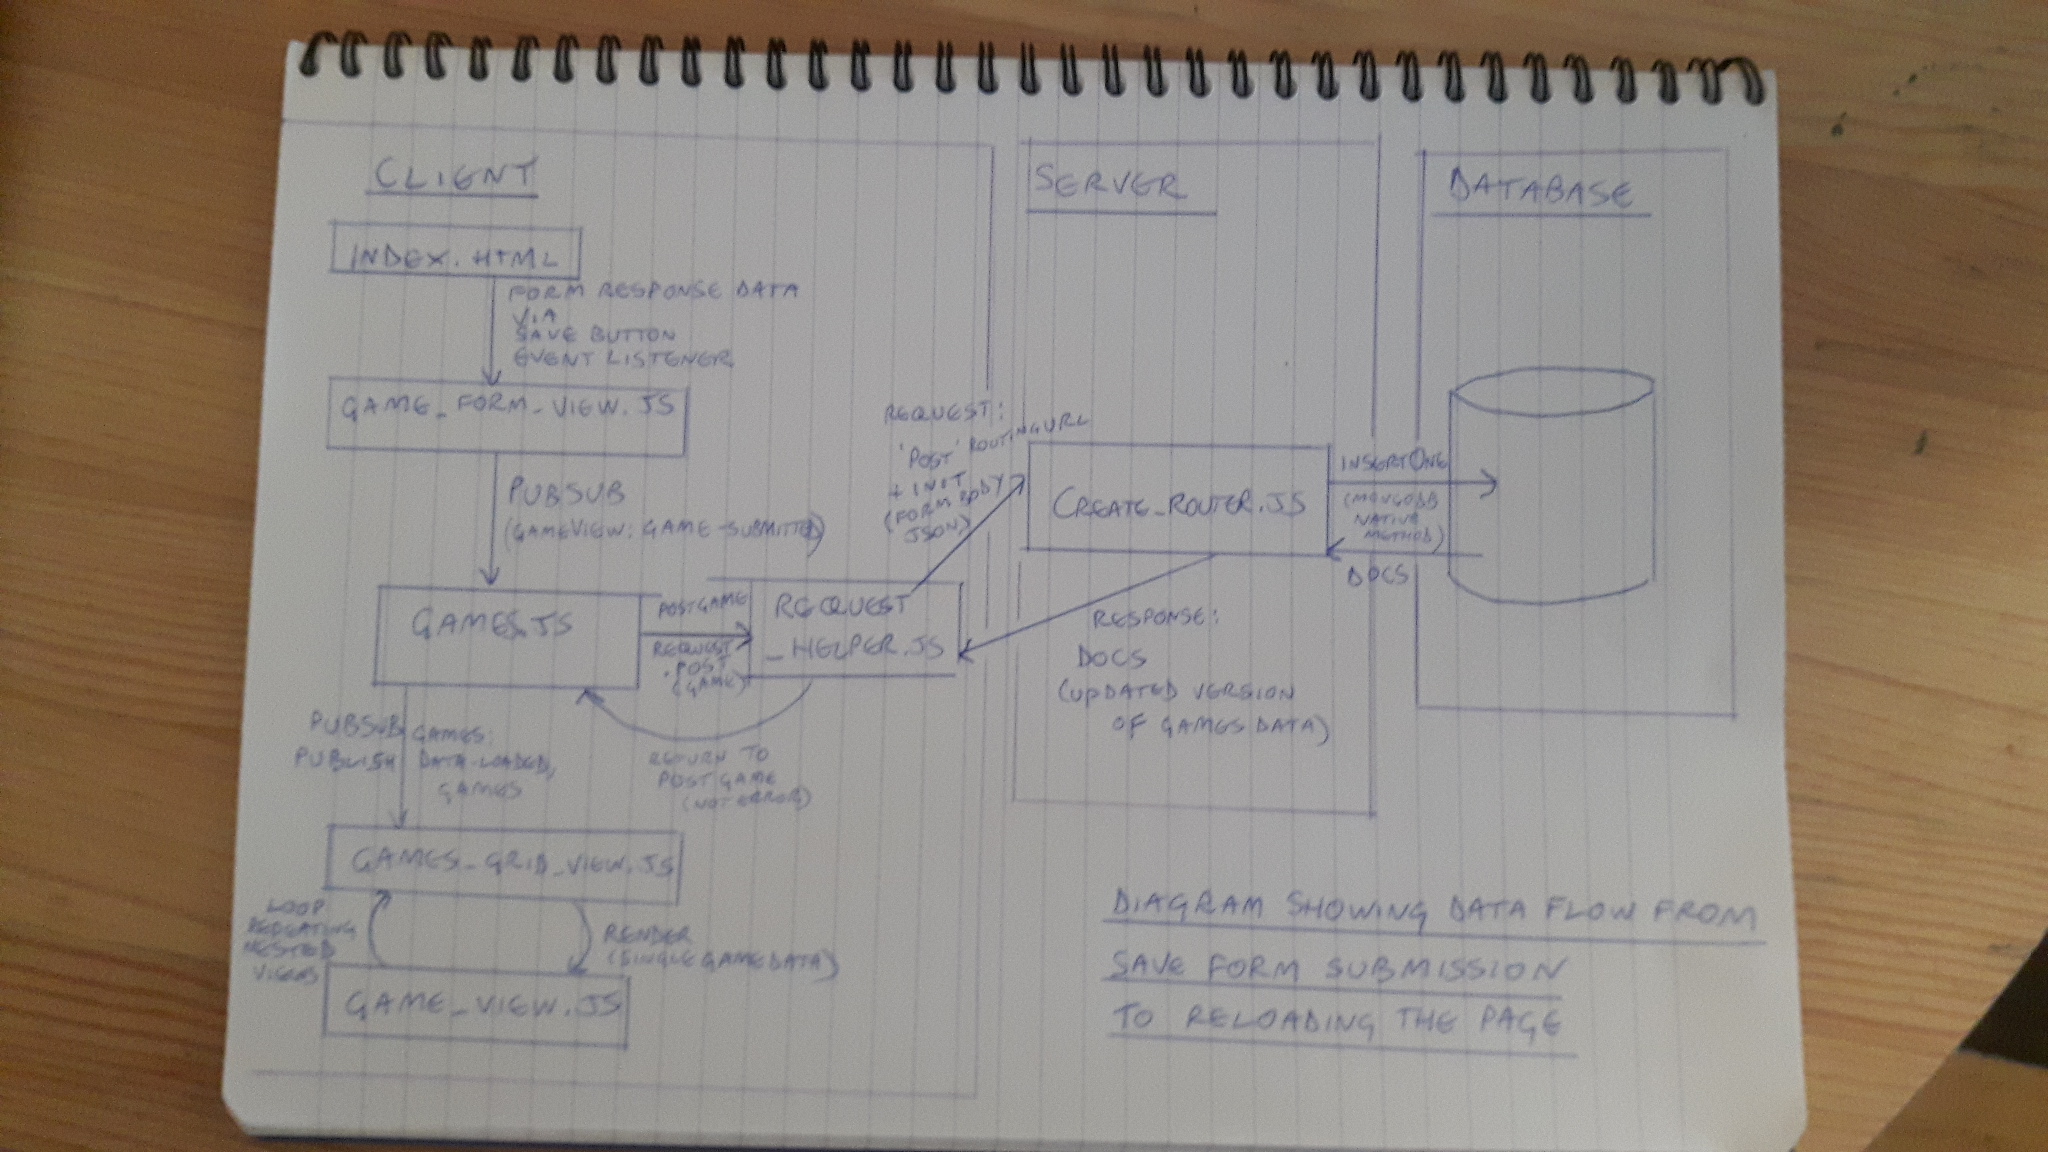 CLIENT
INDEX.HTML
FORM RESPONSE DATA
VIA
SAVE BUTTON
EVENT LISTENER
GAME_FORM_VIEW.JS
PUBSUB
(GAMEVIEW: GAME-SUBMITTED)
GAMES.JS
POSTGAME
REQUEST
.POST
(GAME)
REQUEST
_HELPER.JS
RETURN TO
POSTGAME
(NOT ERROR)
PUBSUB GAMES:
PUBLISH DATA-LOADED,
GAMES
GAMES_GRID_VIEW.JS
LOOP
REPEATING
NESTED
VIEWS
RENDER
(SINGLE GAME DATA)
GAME_VIEW.JS
SERVER
REQUEST:
'POST' ROUTING URL
+ INIT
(FORM BODY
JSON)
CREATE_ROUTER.JS
RESPONSE:
DOCS
(UPDATED VERSION
OF GAMES DATA)
DATABASE
INSERTONE
(MONGODB
NATIVE
METHOD)
DOCS
DIAGRAM SHOWING DATA FLOW FROM
SAVE FORM SUBMISSION
TO RELOADING THE PAGE